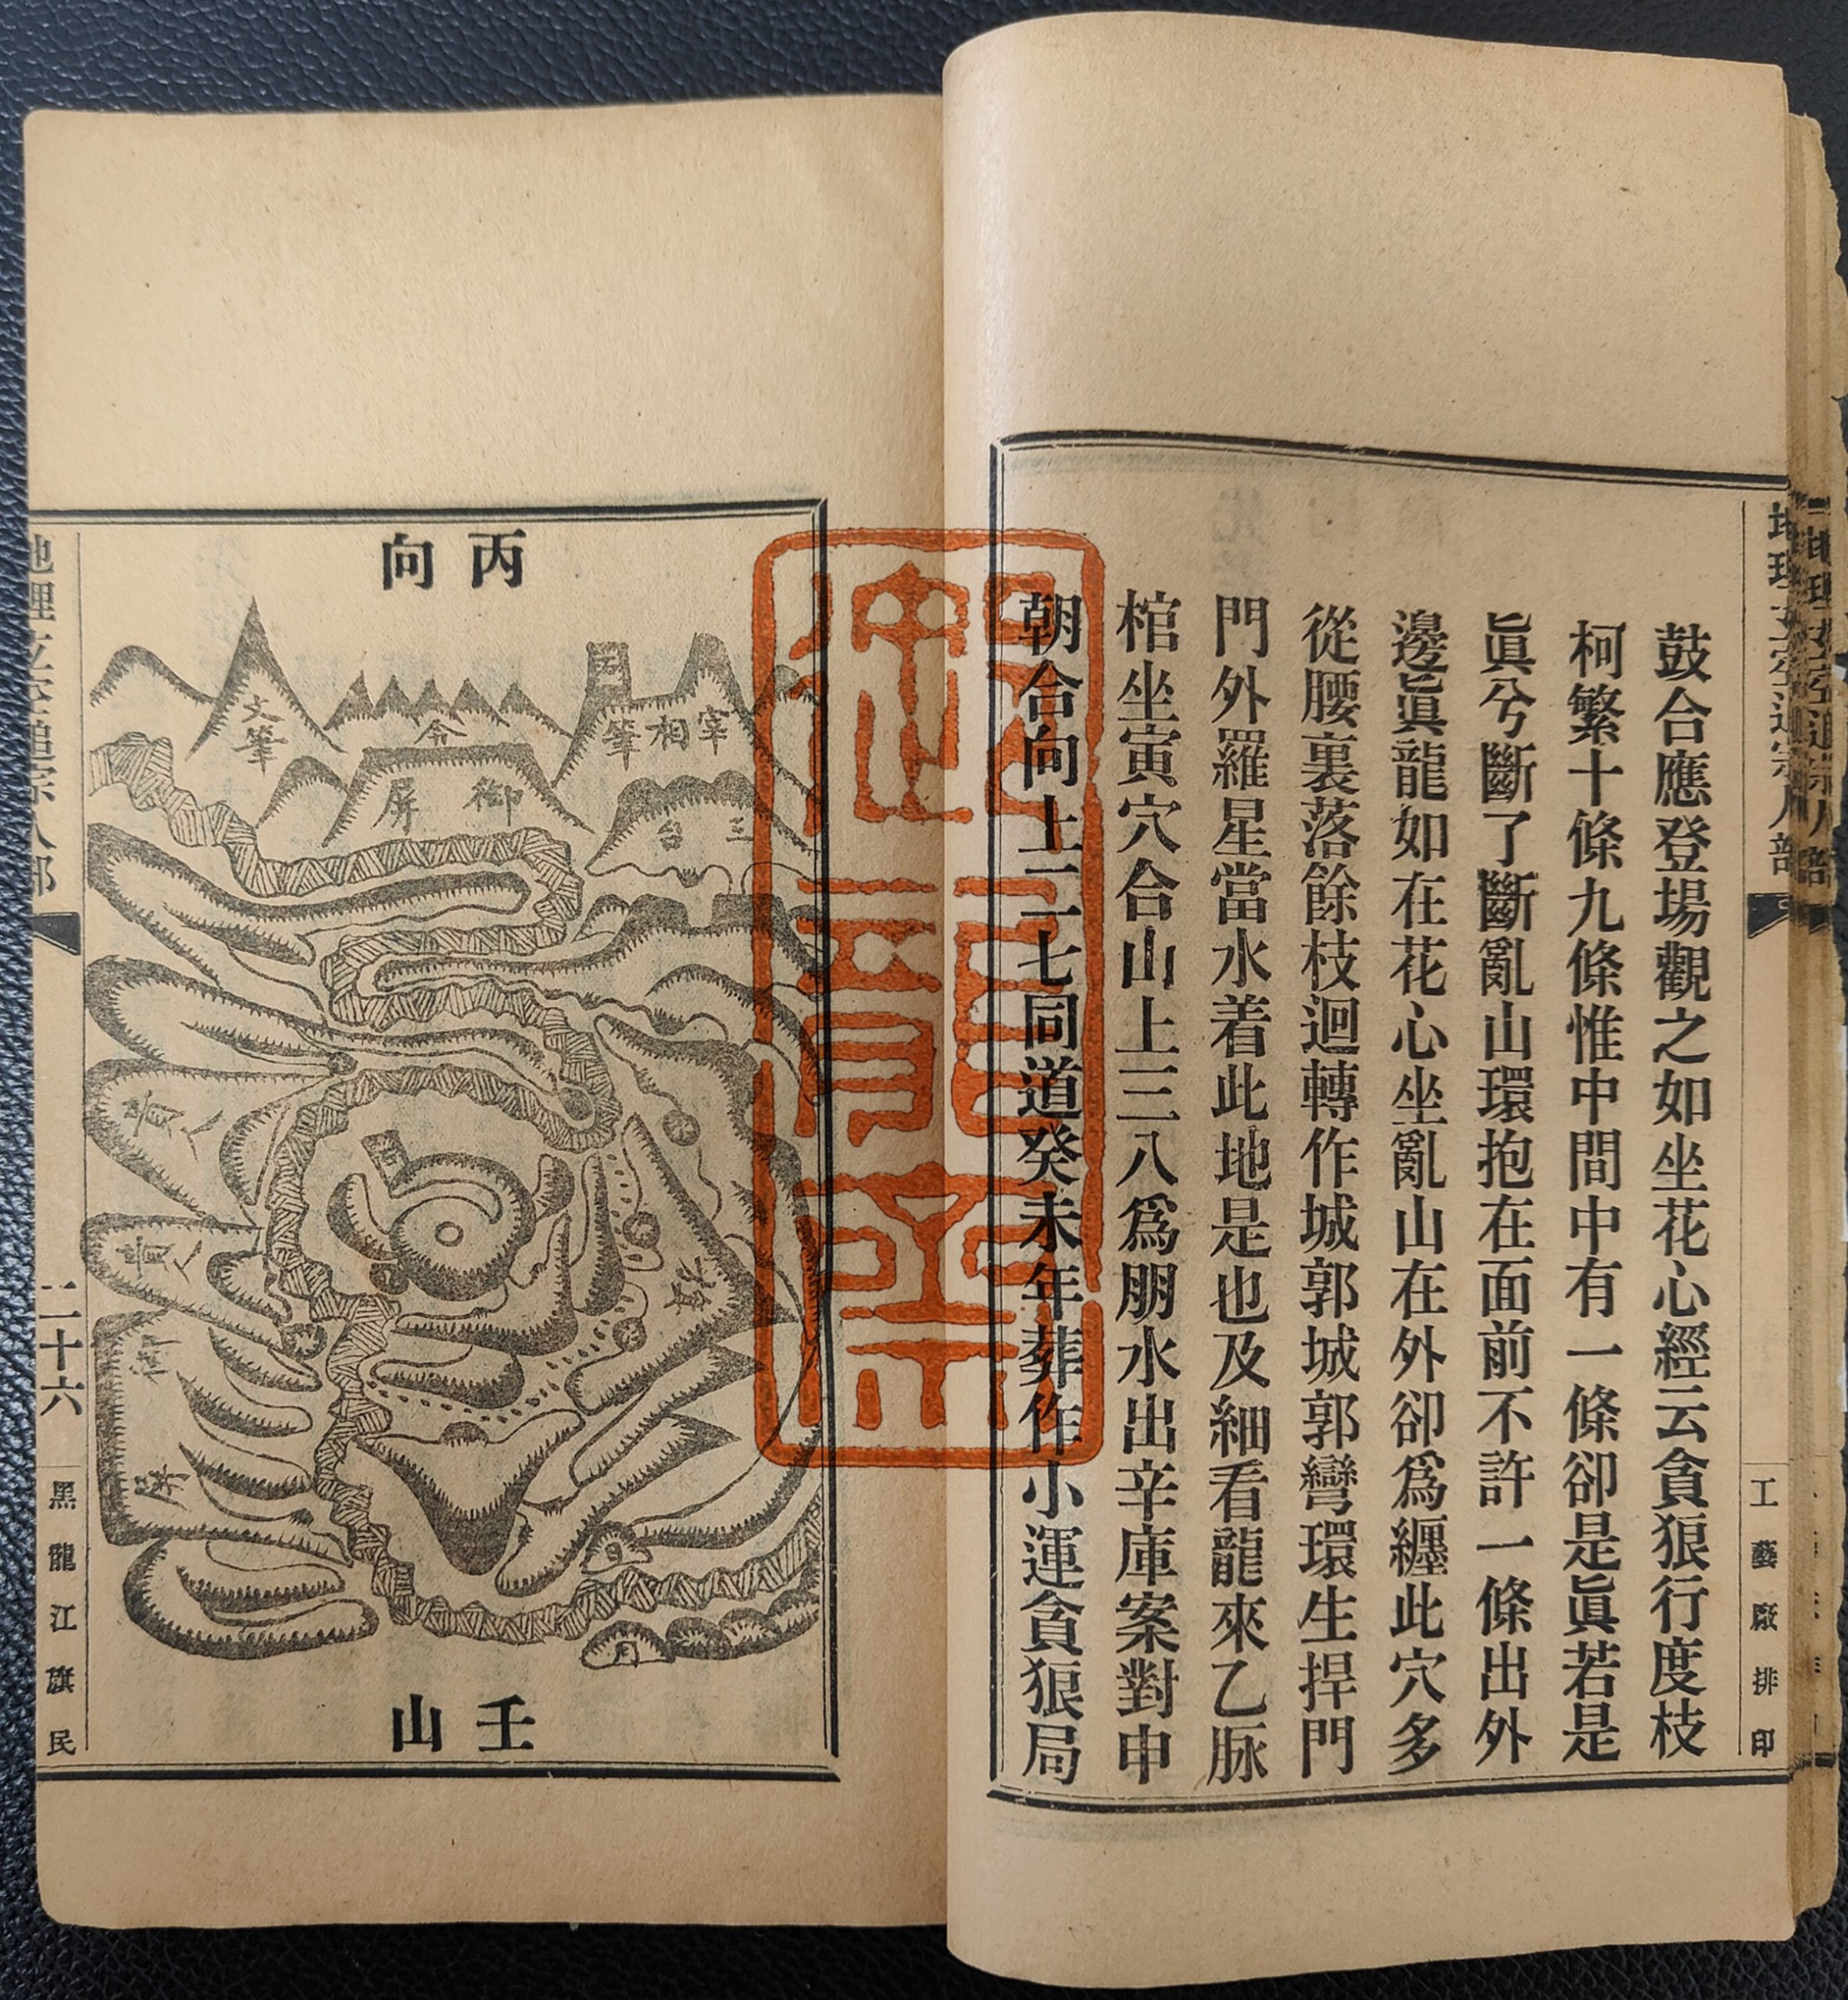 工藝廠排印
鼓合應登場觀之如坐花心經云貪狼行度枝
柯繁十條九條惟中間中有一條卻是眞若是
眞兮斷了斷亂山環抱在面前不許一條出外
邊眞龍如在花心坐亂山在外卻爲纏此穴多
從腰裏落餘枝迴轉作城郭城郭彎環生捍門
門外羅星當水着此地是也及細看龍來乙脉
棺坐寅穴合山上三八爲朋水出辛庫案對申
朝合向上二七同道癸未年葬作小運貪狼局
丙向
宰相筆
令
文筆
御屏
三台
貴人
貴人
御
屏
旗
壬山
二十六
黑龍江旗民